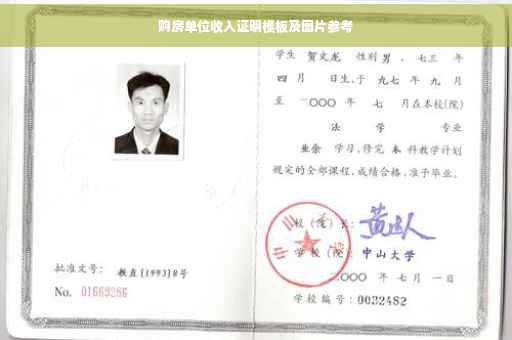 购房单位收入证明模板及图片参考
学生 贺文龙 性别 男 、七三 年
四 月 日生,于 九七 年 九 月
至 二〇〇〇 年 七 月在本校(院)
法 学 专业
业余 学习,修完 本 科教学计划
规定的全部课程,成绩合格,准予毕业。
校(院)长:
学校(院): 中山大学
二〇〇〇 年 七月 一日
学校编号:0032482
批准文号: 教直[1993]8号
No. 01669286